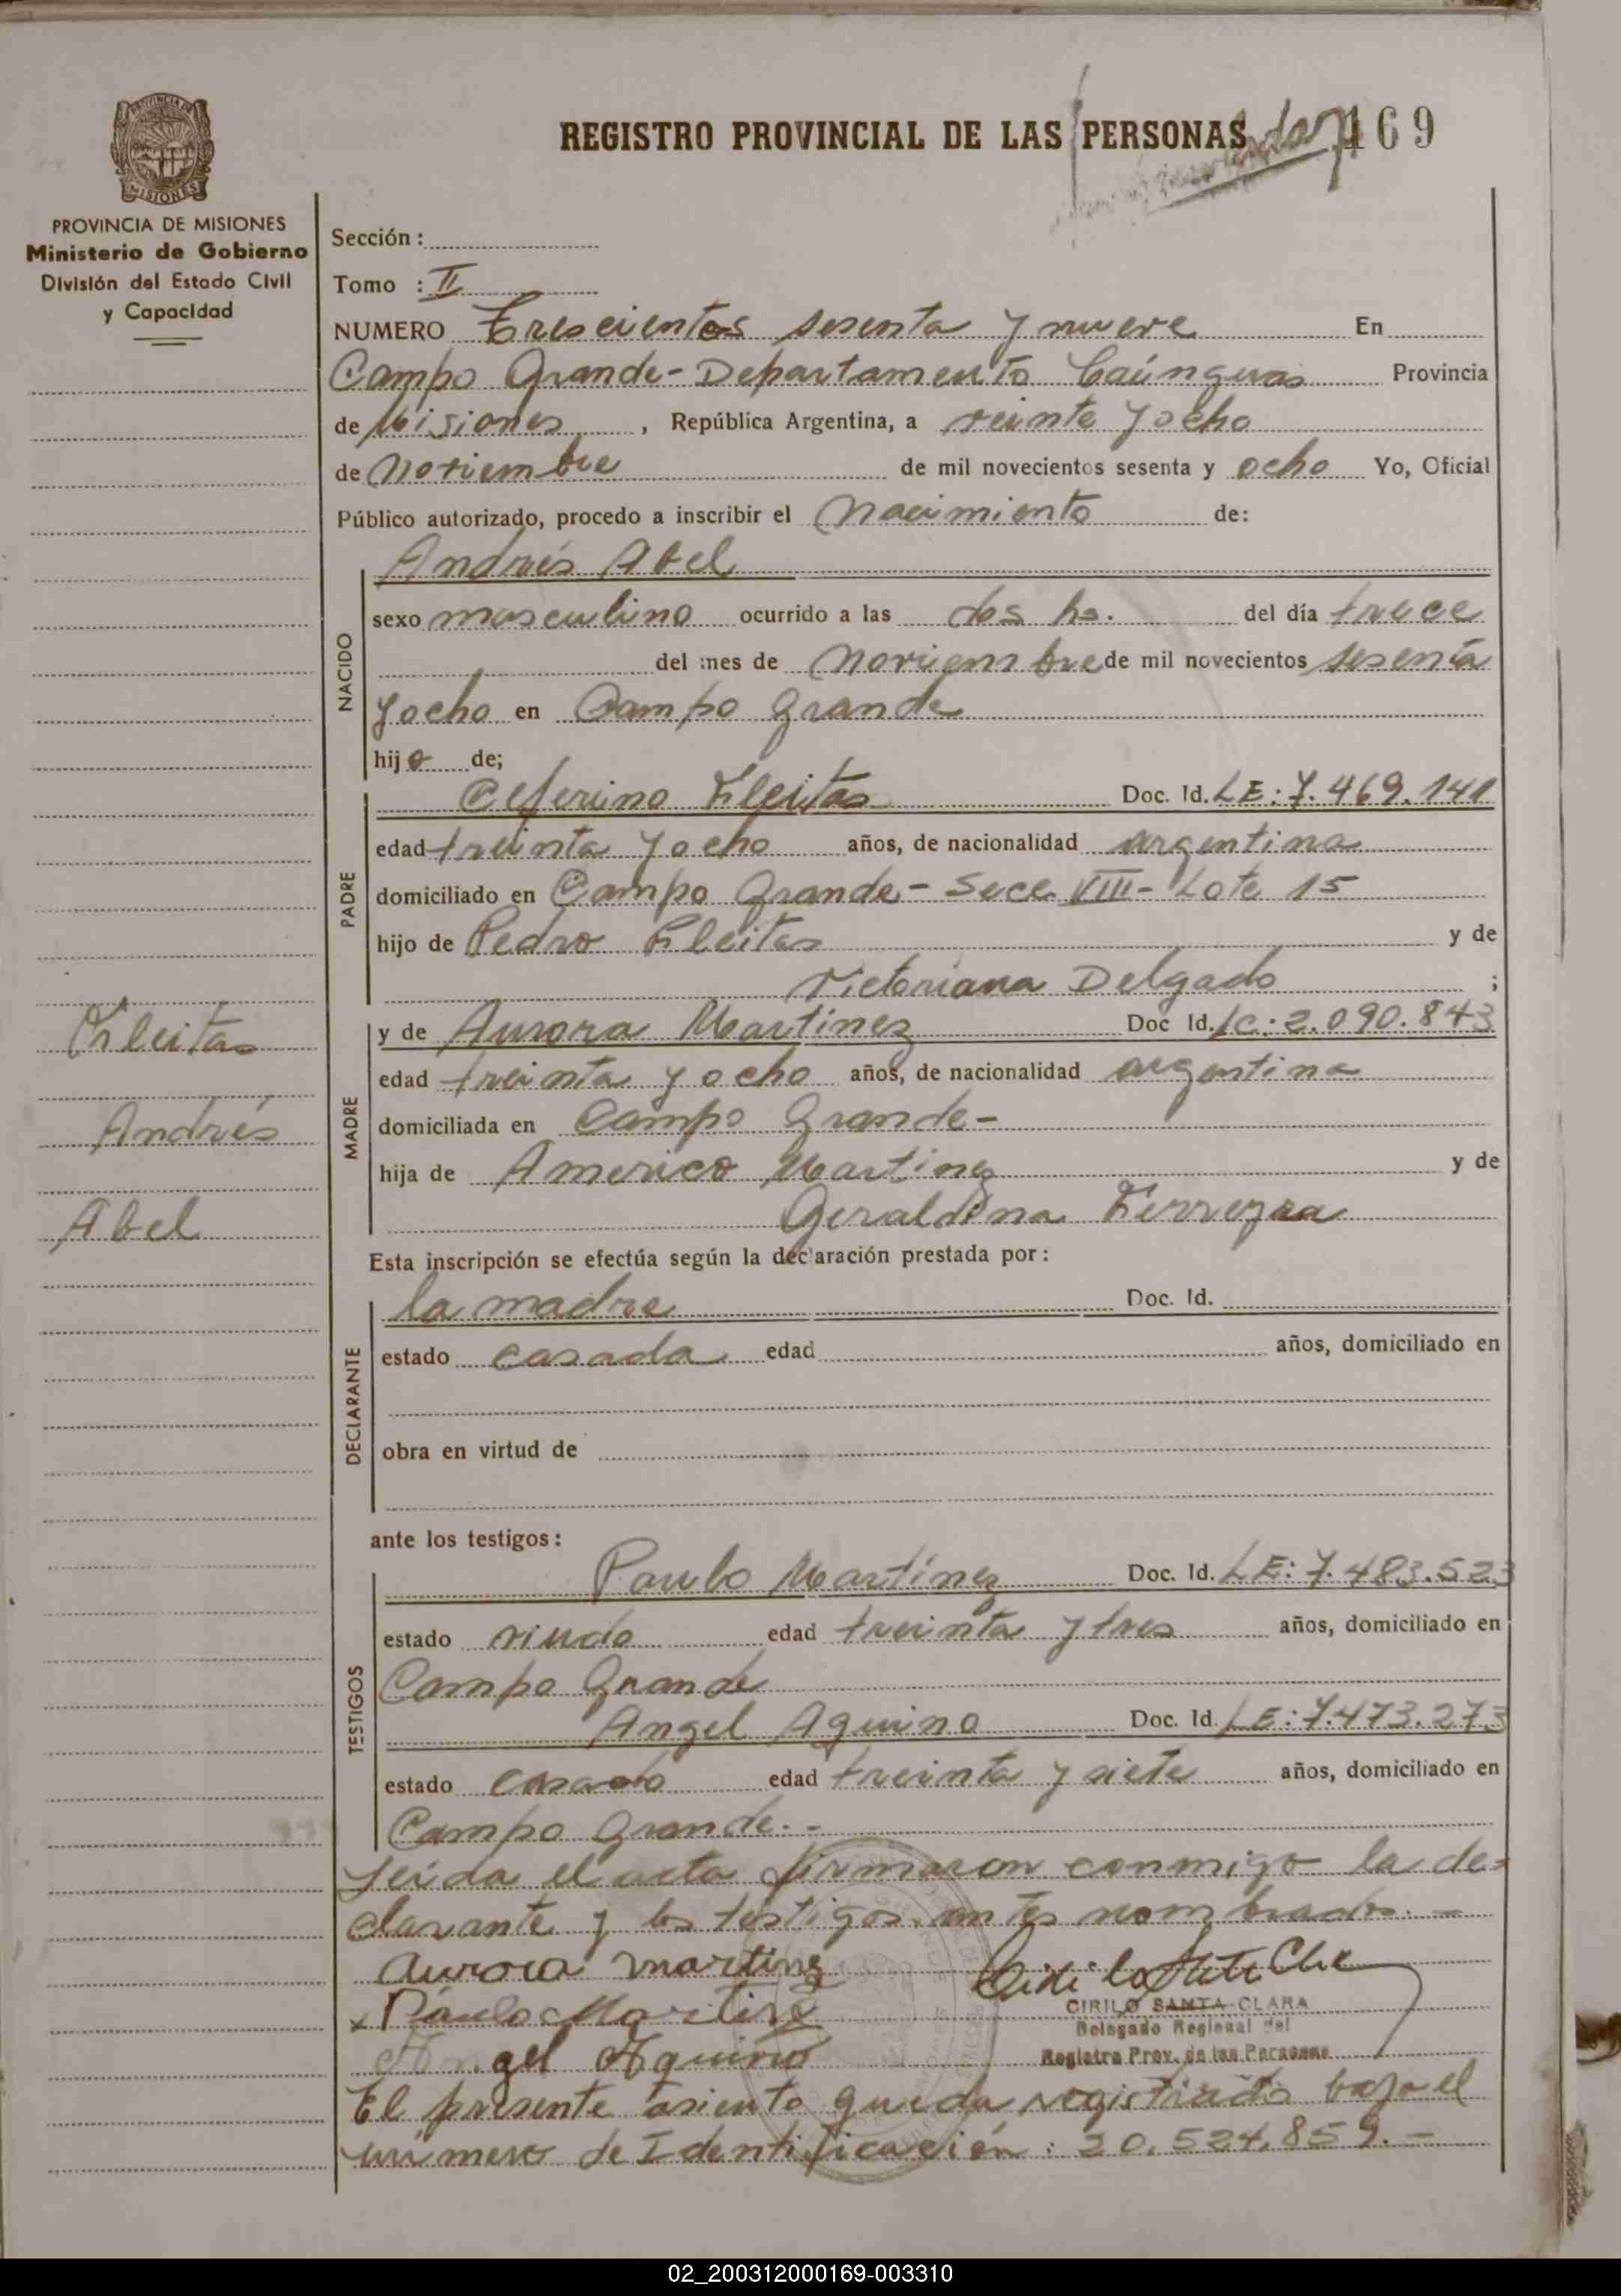 PROVINCIA DE MISIONES
PROVINCIA DE MISIONES
Ministerio de Gobierno
División del Estado Civil
y Capacidad
REGISTRO PROVINCIAL DE LAS PERSONAS 169
Sección :
Tomo : II
NUMERO Trescientos sesenta y nueve En
Campo Grande - Departamento Caínguas Provincia
de Misiones , República Argentina, a veinte y ocho
de Noviembre de mil novecientos sesenta y ocho Yo, Oficial
Público autorizado, procedo a inscribir el Nacimiento de:
Andrés Abel
NACIDO
sexo masculino ocurrido a las dos hs. del día trece
del mes de Noviembre de mil novecientos sesenta
y ocho en Campo Grande
hijo de;
PADRE
Ceferino Fleitas Doc. Id. LE: 7.469.141
edad treinta y ocho años, de nacionalidad argentina
domiciliado en Campo Grande - Secc VIII - Lote 15
hijo de Pedro Fleitas y de
Victoriana Delgado ;
MADRE
y de Aurora Martinez Doc Id. LC: 2.090.843
edad treinta y ocho años, de nacionalidad argentina
domiciliada en Campo Grande -
hija de Americo Martinez y de
Geraldina Ferreyra
Fleitas
Andrés
Abel
Esta inscripción se efectúa según la declaración prestada por :
DECLARANTE
la madre Doc. Id.
estado casada edad años, domiciliado en
obra en virtud de
ante los testigos :
TESTIGOS
Paulo Martínez Doc. Id. LE: 7.483.523
estado viudo edad treinta y tres años, domiciliado en
Campo Grande
Angel Aquino Doc. Id. LE: 7.473.273
estado casado edad treinta y siete años, domiciliado en
Campo Grande. -
Leída el acta firmaron conmigo la de-
clarante y los testigos antes nombrados. -
Aurora Martinez
Paulo Martinez
Angel Aquino
CIRILO SANTA CLARA
Delegado Regional del
Registro Prov. de las Personas
El presente asiento queda registrado bajo el
número de Identificación : 20.524.859. -
02_200312000169-003310